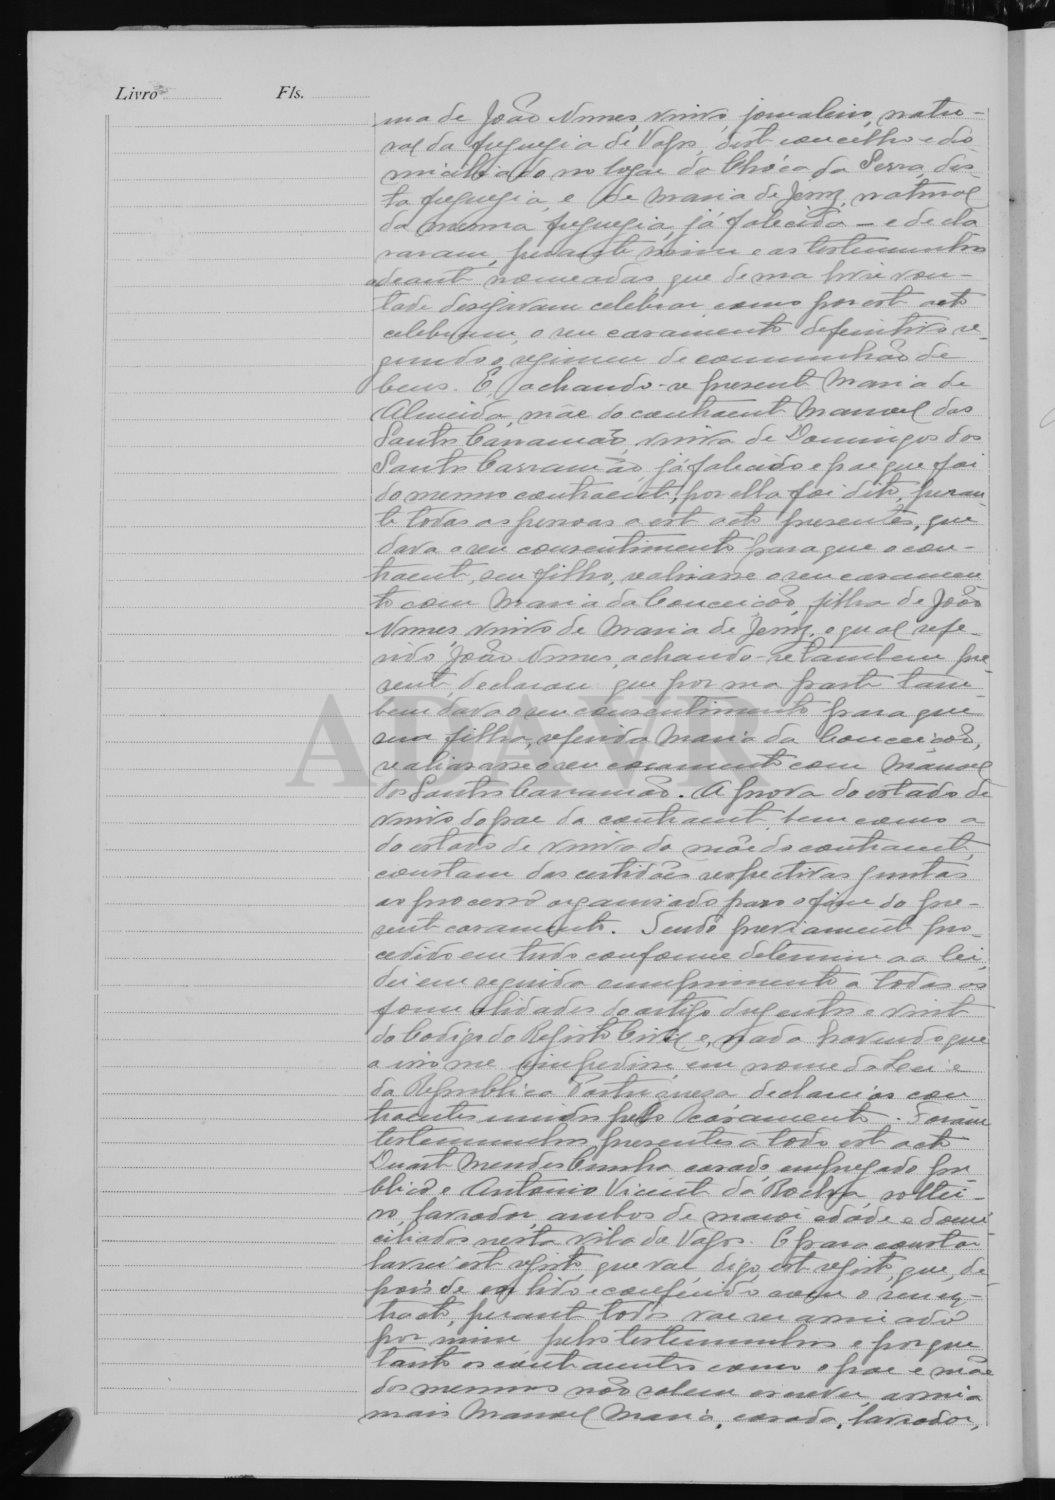 Livro Fls.
ma de João Nunes, viuvo, jornaleiro, natu-
ral da freguezia de Vagos, dest concelho e do-
miciliado no logar da Chóca da Serra, des-
ta freguezia, e de Maria de Jesus, natural
da mesma freguezia, já falecida – e decla
raram, perante mim e as testemunhas
adeant nomeadas, que de sua livre von-
tade desejavam celebrar como por est acto
celebram, o seu casamento definitivo se-
gundo o regimen de communhão de
bens. E, achando-se present Maria de
Almeida, mãe do contraent Manoel dos
Santos Carramão, viuva de Domingos dos
Santos Carramão, já falecido e pae que foi
do mesmo contraent, por ella foi dito, peran
te todas as pessoas a est acto presentes, que
dava o seu consentimento para que o con-
traent, seu filho, realisasse o seu casamen
to com Maria da Conceição, filha de João
Nunes, viuvo de Maria de Jesus, o qual refe-
rido João Nunes, achando-se tambem pre-
sent, declarou que por sua part tam-
bem dava o seu consentimento para que
sua filha, referida Maria da Conceição,
realisasse o seu casamento com Manoel
dos Santos Carramão. A prova do estado de
viuvo do pae da contraent, bem como a
do estado de viuva da mãe do contraent,
constam das certidões respectivas juntas
ao processo organisado para o fim do pre-
sent casamento. Sendo previament pro-
cedido em tudo conforme determina a lei,
dei em seguida cumprimento a todas as
formalidades do artigo dusentos e vint
do Codigo do Registo Civil e, nada havendo que
a isso me impedisse, em nome da Lei e
da Republica Portugueza declarei os con
traentes unidos pelo casamento. Foram
testemunhas presentes a todo est acto
Duart Mendes Cunha casado empregado pu
blico e Antonio Vicent da Rocha, soltei-
ro, lavrador, ambos de maior edade e domi
ciliados nesta vila de Vagos. E para constar
lavrei est registo, que vai digo, est registo, que, de
pois de ser lido e conferido com o seu ex-
tracto, perant todos vae ser assinado
por mim pelas testemunhas e porque
tanto os contraentes como o pae e mãe
dos mesmos não sabem escrever, assina
mais Manoel Maria, casado, lavrador,
ADAVR